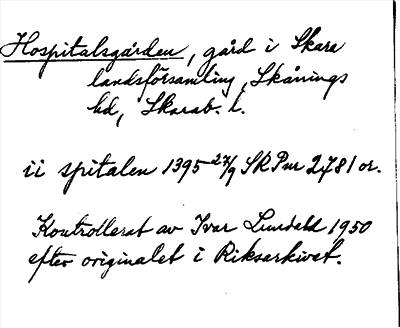 Hospitalsgården, gård i Skara
landsförsamling, Skånings
hd, Skarab. l.
ii spitalen 1395 27/9 SRPnr 2781 or.
Kontrollerat av Ivar Lundahl 1950
efter originalet i Riksarkivet.